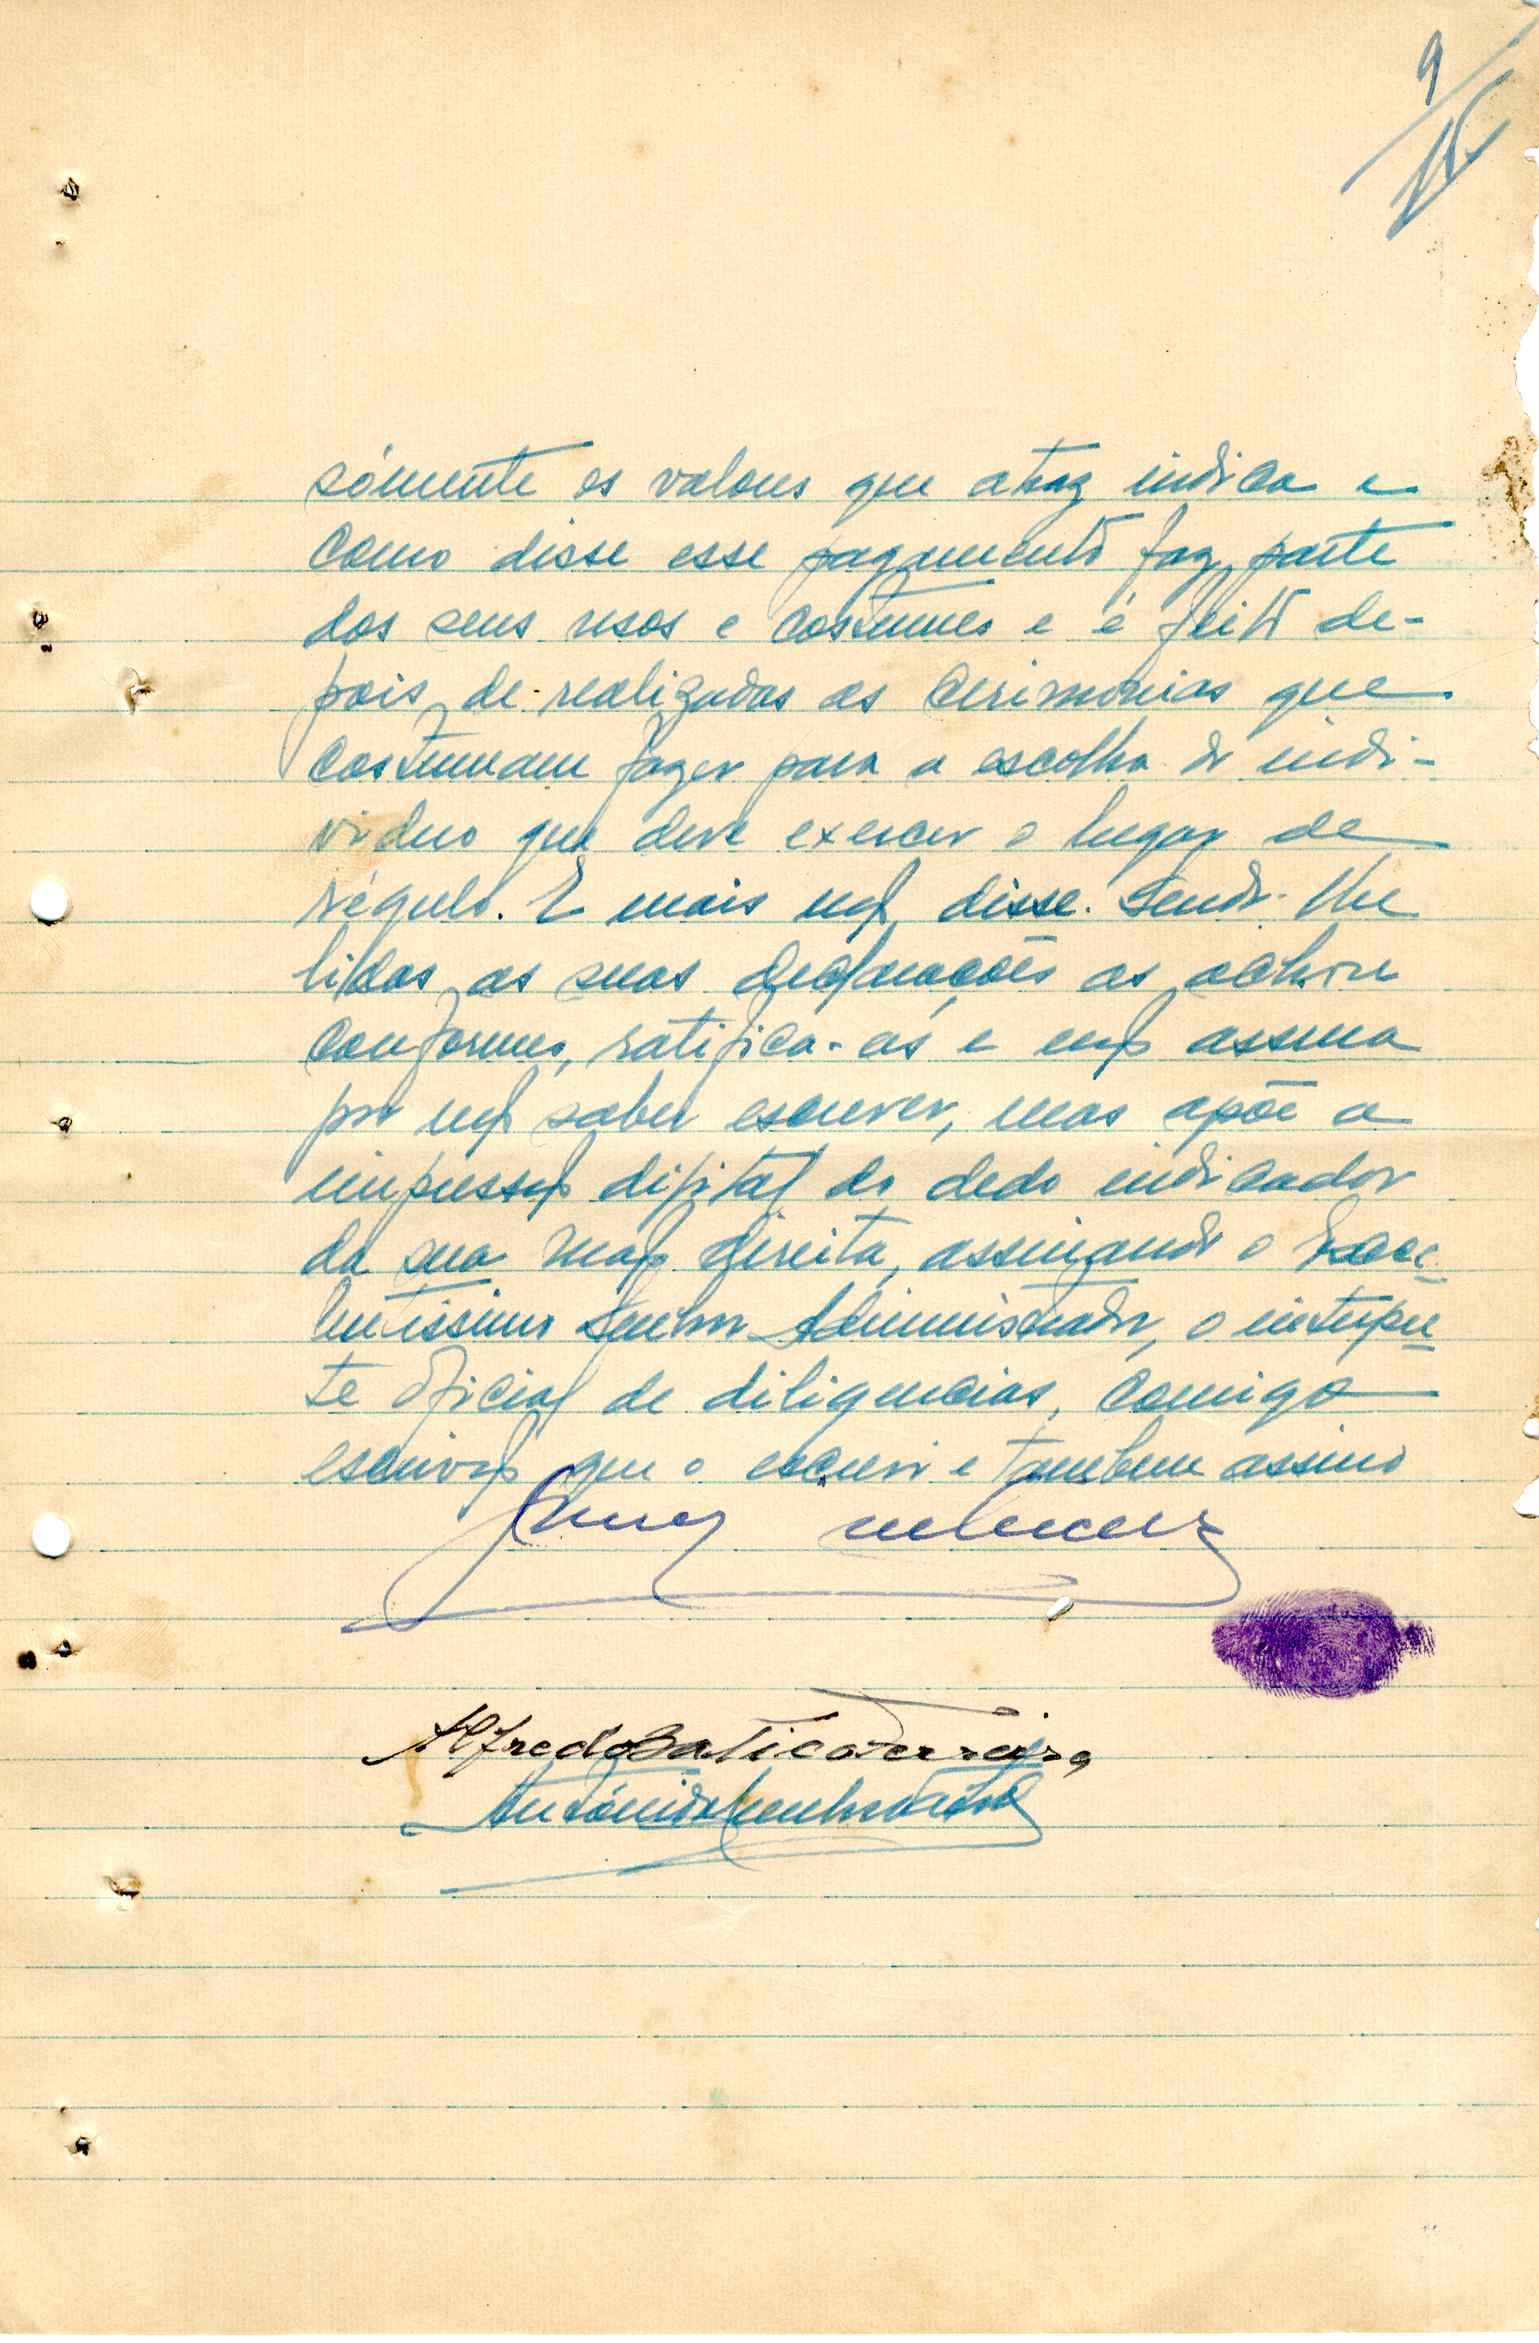 9
sómente os valores que atraz indica e
como disse esse pagamento faz parte
dos seus usos e costumes e é feito de-
pois de realizadas as cerimonias que
costumam fazer para a escolha do indi-
viduo que deve exercer o lugar de
régulo. E mais não disse. Sendo-lhe
lidas as suas declarações as achou
conformes, ratifica-as e não assina
por não saber escrever, mas apõe a
impressão digital do dedo indicador
da sua mão direita, assinando o Exce-
lentissimo Senhor Administrador, o interpre-
te oficial de diligencias, comigo
escrivão que o escrevi e tambem assino
Alfredo Batico Ferreira
António